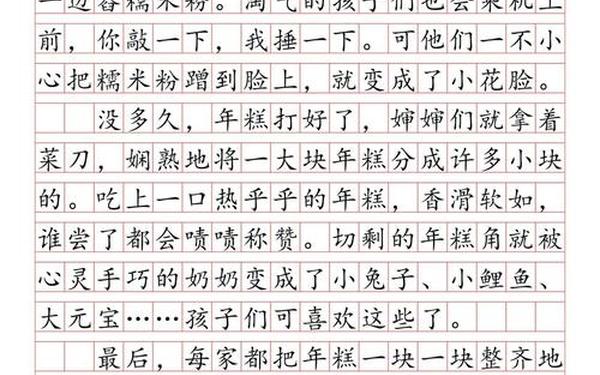 一边舂糯米粉。淘气的孩子们也会乘机上
前，你敲一下，我捶一下。可他们一不小
心把糯米粉蹭到脸上，就变成了小花脸。
没多久，年糕打好了，婶婶们就拿着
菜刀，娴熟地将一大块年糕分成许多小块
的。吃上一口热乎乎的年糕，香滑软如，
谁尝了都会啧啧称赞。切剩的年糕角就被
心灵手巧的奶奶变成了小兔子、小鲤鱼、
大元宝……孩子们可喜欢这些了。
最后，每家都把年糕一块一块整齐地